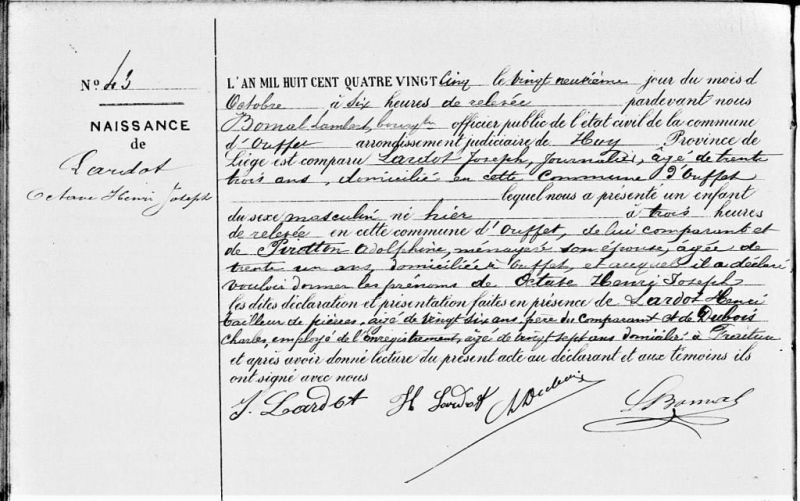 N° 43
NAISSANCE
de
Lardot
Octave Henri Joseph
L'AN MIL HUIT CENT QUATRE VINGT Cinq le vingt neuvième jour du mois d
Octobre à Six heures de relevée pardevant nous
Bomal Lambert, bourgtre officier public de l'état civil de la commune
d'Ouffet arrondissement judiciaire de Huy Province de
Liège est comparu Lardot Joseph, Journalier, âgé de trente
trois ans, domicilié en cette Commune d'Ouffet
lequel nous a présenté un enfant
du sexe masculin né hier à trois heures
de relevée en cette commune d'Ouffet, de lui comparant et
de Pirotton Adolphine, ménagère son épouse, âgée de
trente un ans, domiciliée à Ouffet, et auquel il a déclaré
vouloir donner les prénoms de Octave Henri Joseph
les dites déclaration et présentation faites en présence de Lardot Henri
tailleur de pierres, âgé de vingt six ans, père du Comparant et de Dubois
Charles, employé de l'Enregistrement, âgé de vingt sept ans domicilié à Fraiture
et après avoir donné lecture du présent acte au déclarant et aux témoins ils
ont signé avec nous
J. Lardot H Lardot Dubois LBomal